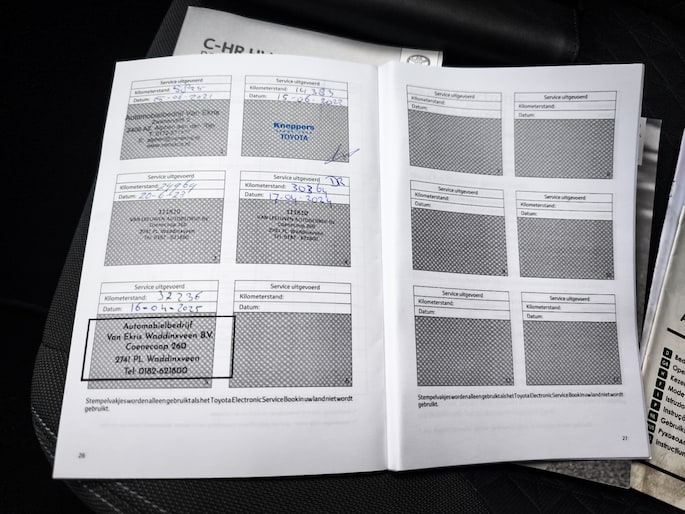 C-HR HY
Service uitgevoerd
Kilometerstand:
Datum:
Automobielbedrijf Van Ekris
Service uitgevoerd
Kilometerstand: 14383
Datum: 15-06-2022
Kneppers
TOYOTA
Service uitgevoerd
Kilometerstand:
Datum:
VAN LEEUWEN AUTOBEDRIJF BV
Coenecoop 260
2741 PL Waddinxveen
Tel: 0182-621800
3
Service uitgevoerd
Kilometerstand: 30364
Datum: 17-04-2024
VAN LEEUWEN AUTOBEDRIJF BV
Coenecoop 260
2741 PL Waddinxveen
Tel: 0182-621800
4
Service uitgevoerd
Kilometerstand: 32236
Datum: 16-04-2025
Automobielbedrijf
Van Ekris Waddinxveen B.V.
Coenecoop 260
2741 PL Waddinxveen
Tel: 0182-621800
5
Service uitgevoerd
Kilometerstand:
Datum:
6
Stempelvakjes worden alleen gebruikt als het Toyota Electronic Service Book in uw land niet wordt
gebruikt.
26
Service uitgevoerd
Kilometerstand:
Datum:
Service uitgevoerd
Kilometerstand:
Datum:
Service uitgevoerd
Kilometerstand:
Datum:
Service uitgevoerd
Kilometerstand:
Datum:
Service uitgevoerd
Kilometerstand:
Datum:
Service uitgevoerd
Kilometerstand:
Datum:
Stempelvakjes worden alleen gebruikt als het Toyota Electronic Service Book in uw land niet wordt
gebruikt.
27